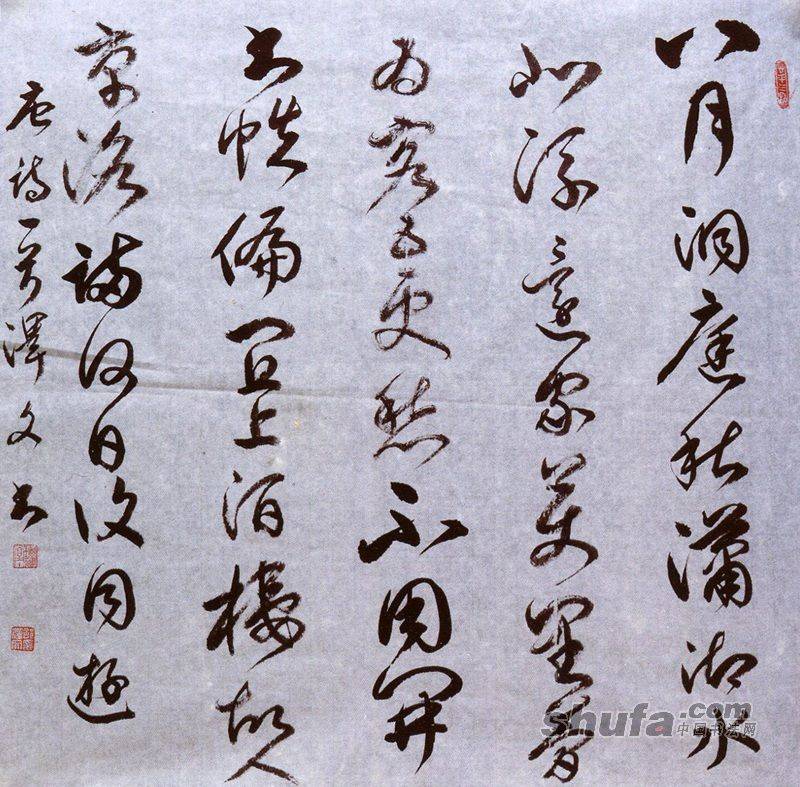 八月洞庭秋瀟湘水
北流還家萬里夢
为客五更愁不用開
书帙偏宜上酒樓故人
京洛滿何日復同遊
唐诗一首澤文书
shufa.com
中国书法网